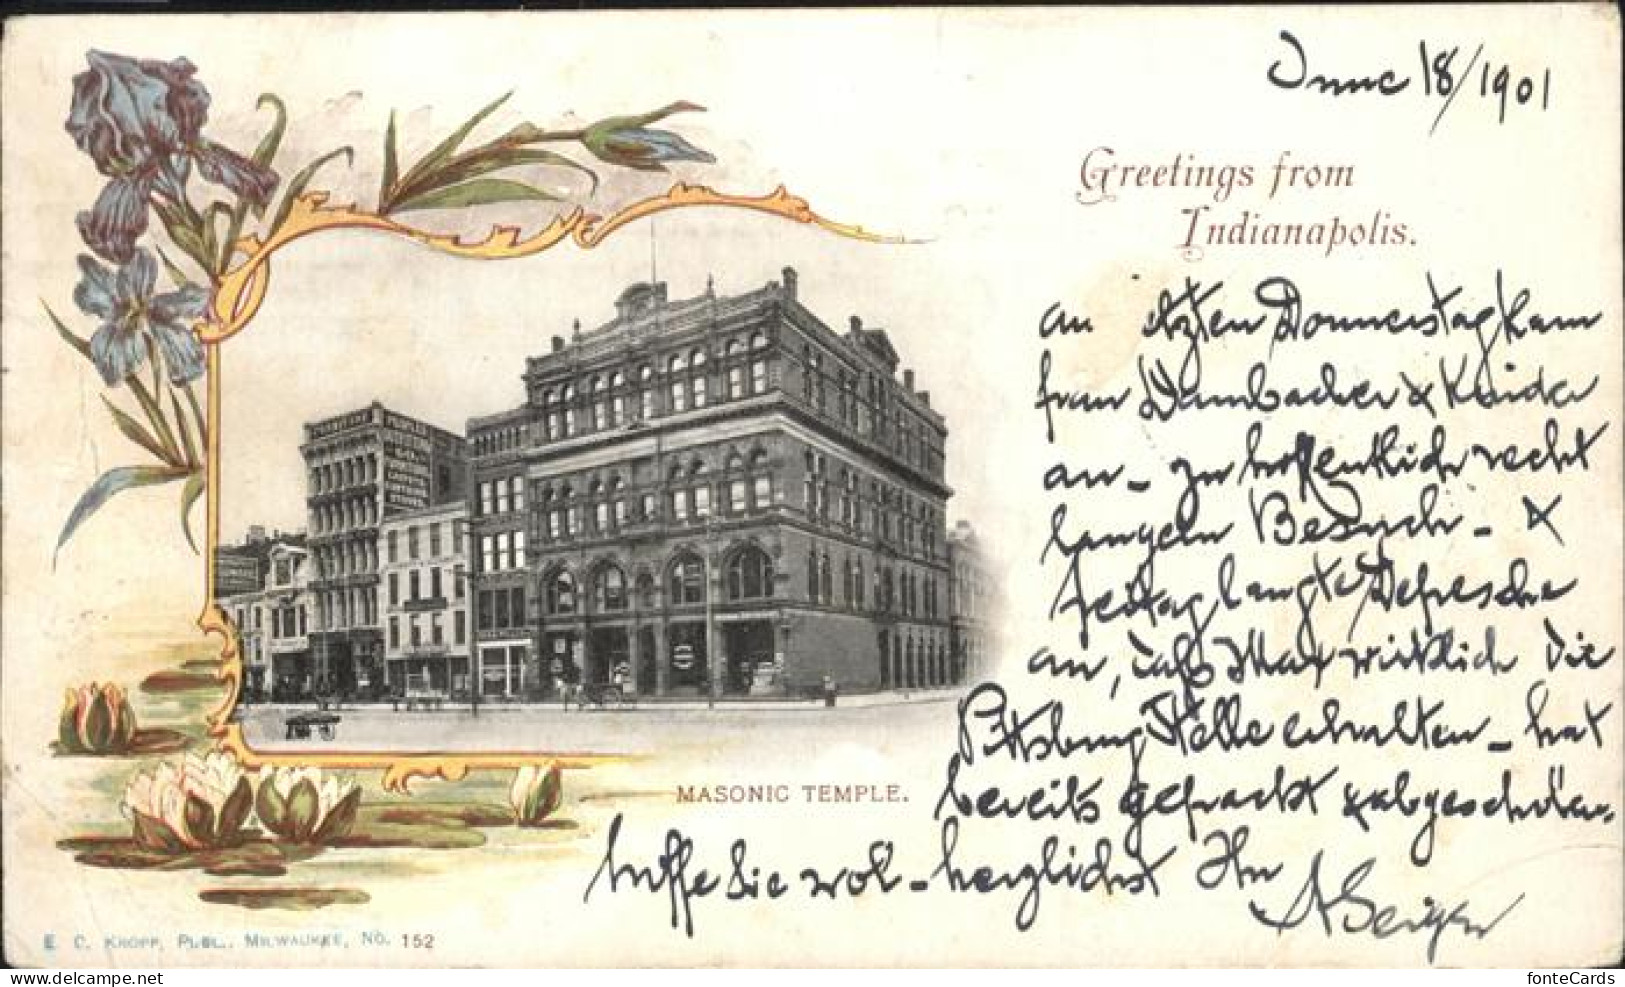 June 18/1901
Greetings from
Indianapolis.
an letzten Donnerstag kam
frau Dambacher & Kinder
an - zu hoffentlich recht
langem Besuch - &
freitag langte Depesche
an, daß Max wirklich die
Pittsburg Stelle erhalten - hat
bereits gepackt & abgeschoben.
hoffe Sie wol - herzlichst Ihr
A Geiger
MASONIC TEMPLE.
E. C. KROPP, PUBL., MILWAUKEE, NO. 152
fonteCards